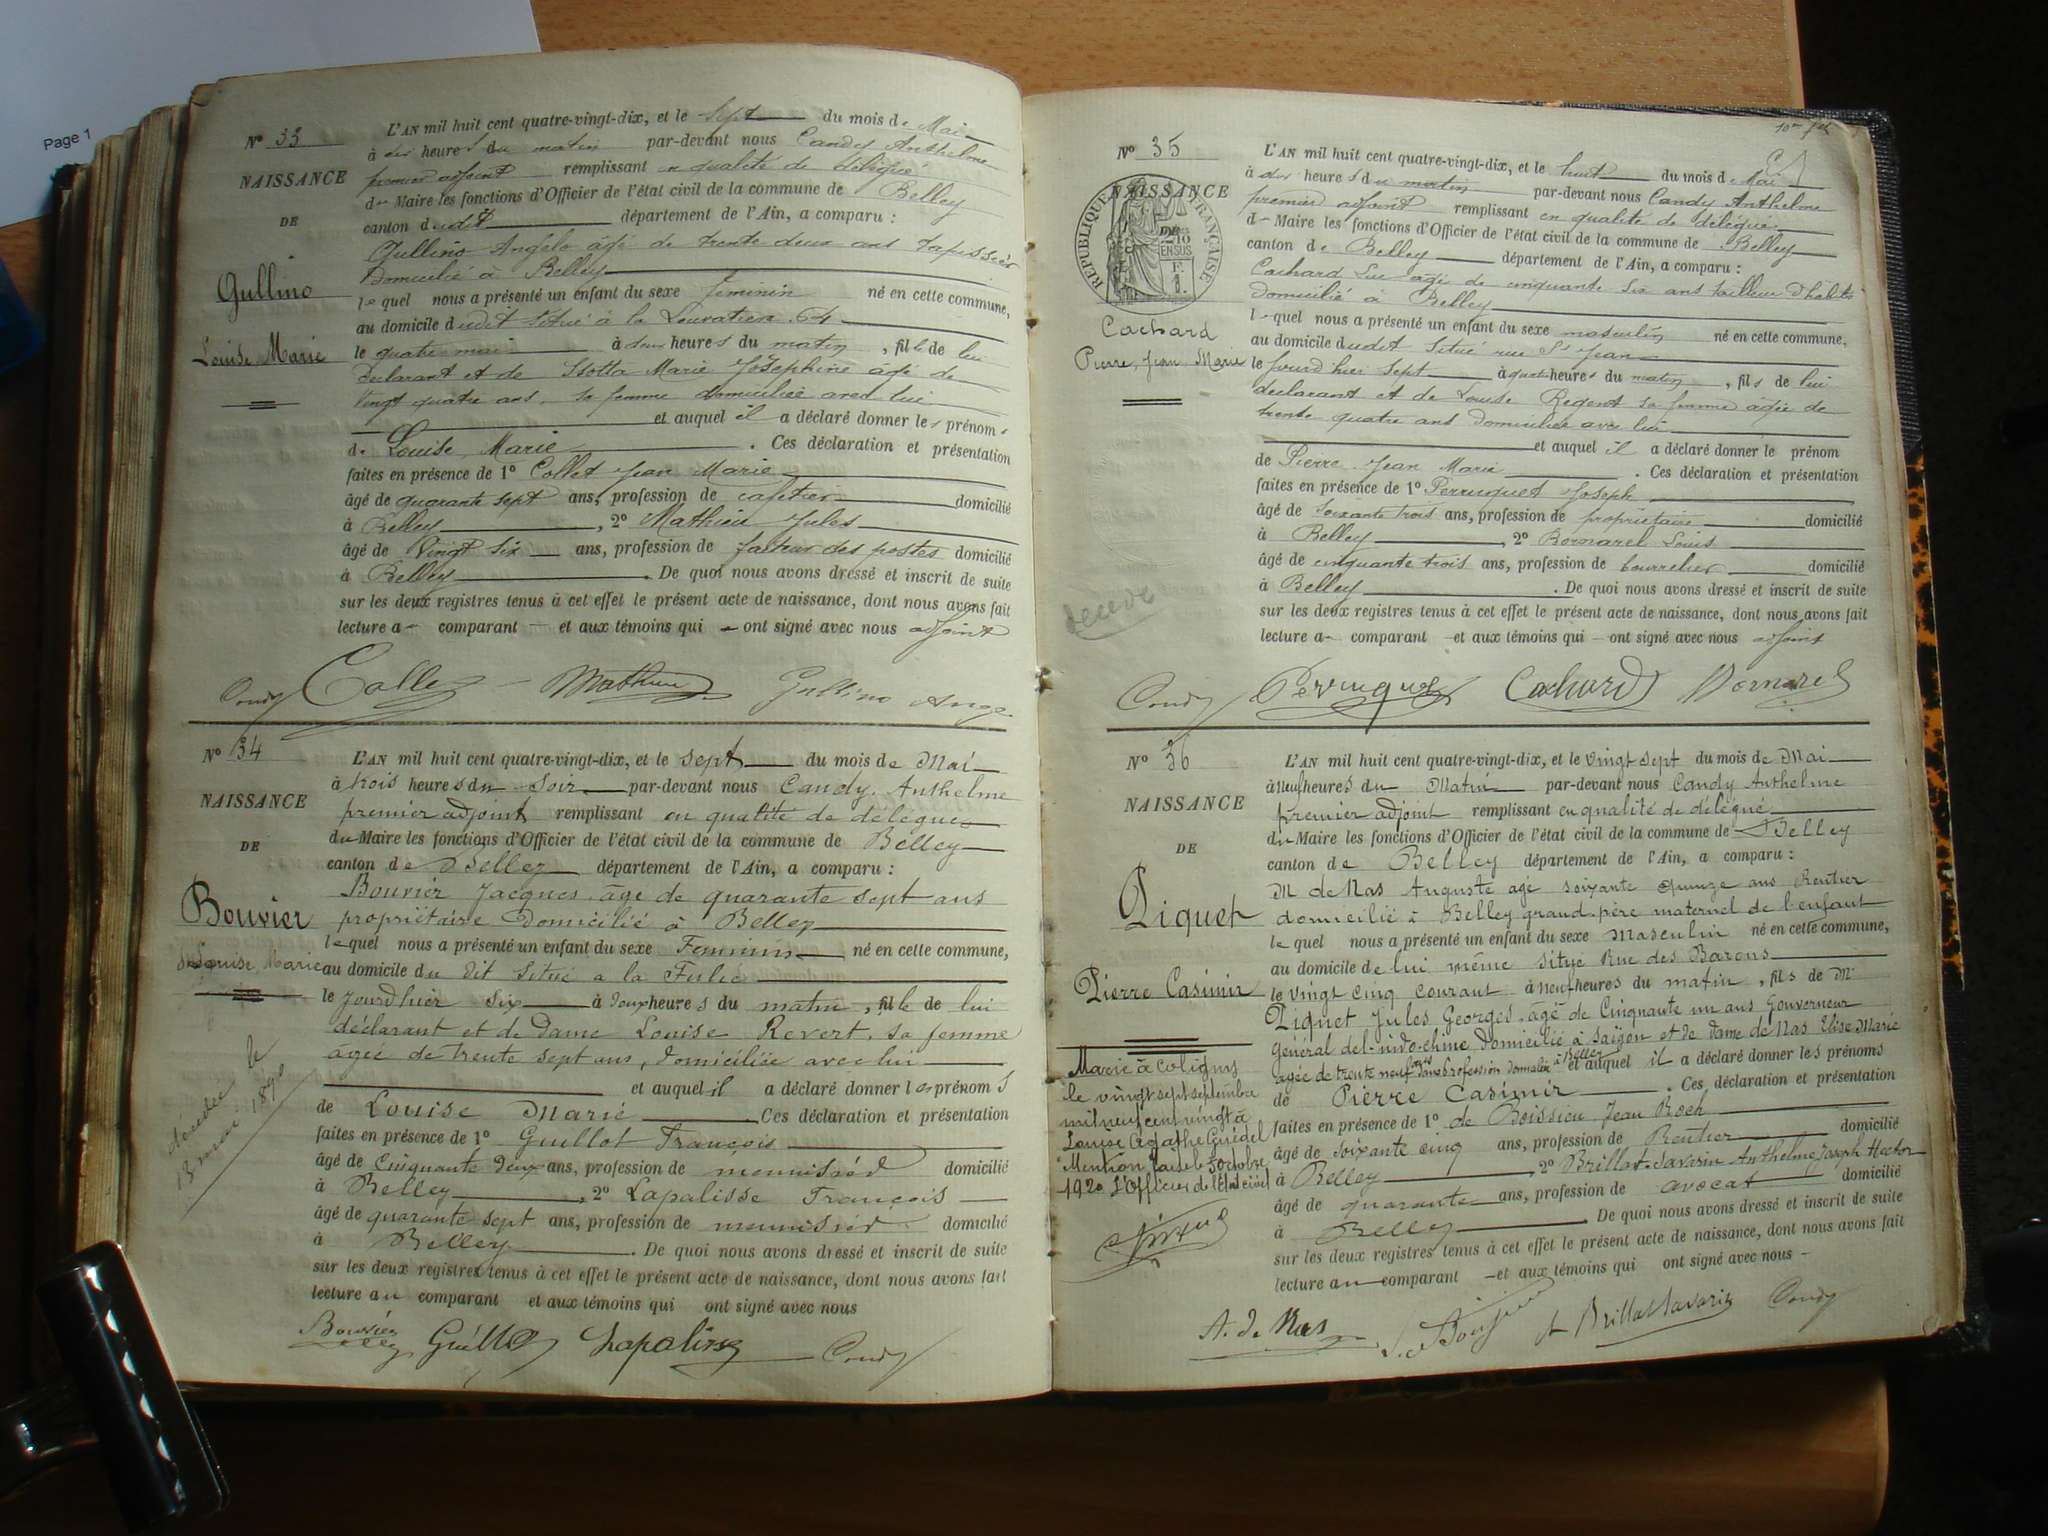 Page 1
N° 33
NAISSANCE
DE
Gullino
Louise Marie
L'AN mil huit cent quatre-vingt-dix, et le sept du mois de Mai
à dix heures du matin par-devant nous Candy Anthelme
premier adjoint remplissant en qualité de délégué
du Maire les fonctions d'Officier de l'état civil de la commune de Belley
canton dudit département de l'Ain, a comparu :
Gullino Angelo âgé de trente deux ans tapissier
Domicilié à Belley
lequel nous a présenté un enfant du sexe féminin né en cette commune,
au domicile dudit situé à la 64
le quatre mai à heures du matin, fille de lui
Déclarant et de Isotta Marie Joséphine âgé de
Vingt quatre ans, sa femme domiciliée avec lui
et auquel il a déclaré donner les prénoms
de Louise, Marie. Ces déclaration et présentation
faites en présence de 1° Collet Jean Marie
âgé de quarante sept ans, profession de cafetier domicilié
à Belley, 2° Mathieu Jules
âgé de Vingt six ans, profession de facteur des postes domicilié
à Belley. De quoi nous avons dressé et inscrit de suite
sur les deux registres tenus à cet effet le présent acte de naissance, dont nous avons fait
lecture a comparant et aux témoins qui ont signé avec nous adjoint
Candy Collet Mathieu Gullino Ange
N° 34
NAISSANCE
DE
Bouvier
Louise Marie
décédée le
13 mai 1890
L'AN mil huit cent quatre-vingt-dix, et le sept du mois de Mai
à trois heures du Soir par-devant nous Candy, Anthelme
premier adjoint remplissant en qualité de délégué
du Maire les fonctions d'Officier de l'état civil de la commune de Belley
canton de Belley département de l'Ain, a comparu :
Bouvier Jacques, âgé de quarante sept ans
propriétaire Domicilié à Belley
lequel nous a présenté un enfant du sexe Feminin né en cette commune,
au domicile du dit situé a la
le Jourd'hier Six à heures du matin, fille de lui
déclarant et de Dame Louise Revert, sa femme
âgée de trente sept ans, Domiciliée avec lui
et auquel il a déclaré donner les prénoms
de Louise Marie Ces déclaration et présentation
faites en présence de 1° Guillot François
âgé de Cinquante Deux ans, profession de menuisier domicilié
à Belley, 2° Lapalisse François
âgé de quarante sept ans, profession de menuisier domicilié
à Belley. De quoi nous avons dressé et inscrit de suite
sur les deux registres tenus à cet effet le présent acte de naissance, dont nous avons fait
lecture au comparant et aux témoins qui ont signé avec nous
Bouvier Guillot Lapalisse Candy
N° 35
NAISSANCE
RÉPUBLIQUE FRANÇAISE
Cachard
Pierre, Jean Marie
décédé
L'AN mil huit cent quatre-vingt-dix, et le huit du mois de Mai
à dix heures du matin par-devant nous Candy Anthelme
premier adjoint remplissant en qualité de délégué
du Maire les fonctions d'Officier de l'état civil de la commune de Belley
canton de Belley département de l'Ain, a comparu :
Cachard Luc âgé de cinquante six ans tailleur d'habits
Domicilié à Belley
lequel nous a présenté un enfant du sexe masculin né en cette commune,
au domicile dudit situé rue St Jean
le jourd'hier sept à quatre heures du matin, fils de lui
déclarant et de Louise Regent sa femme âgée de
trente quatre ans Domiciliée avec lui
et auquel il a déclaré donner le prénom
de Pierre Jean Marie. Ces déclaration et présentation
faites en présence de 1° Perruquet Joseph
âgé de soixante trois ans, profession de propriétaire domicilié
à Belley, 2° Bornarel Louis
âgé de cinquante trois ans, profession de bourrelier domicilié
à Belley. De quoi nous avons dressé et inscrit de suite
sur les deux registres tenus à cet effet le présent acte de naissance, dont nous avons fait
lecture a comparant et aux témoins qui ont signé avec nous adjoint
Candy Perruquet Cachard Bornarel
N° 36
NAISSANCE
DE
Piquet
Pierre Casimir
Marié à Coligny
le vingt sept septembre
mil neuf cent vingt à
Louise Agathe Guidel
Mention faite le 5 octobre
1920 L'Officier de l'état civil
L'AN mil huit cent quatre-vingt-dix, et le vingt sept du mois de Mai
à neuf heures du Matin par-devant nous Candy Anthelme
premier adjoint remplissant en qualité de délégué
du Maire les fonctions d'Officier de l'état civil de la commune de Belley
canton de Belley département de l'Ain, a comparu :
M de Nas Auguste agé soixante quinze ans Rentier
domicilié à Belley grand-père maternel de l'enfant
lequel nous a présenté un enfant du sexe Masculin né en cette commune,
au domicile de lui même situé Rue des Barons
le vingt cinq courant à neuf heures du matin, fils de Mr
Piquet Jules Georges, âgé de Cinquante un ans Gouverneur
Général de l'indo-chine Domicilié à Saïgon et de Dame de Nas Elise Marie
agée de trente neuf ans sans profession domiciliée à Belley et auquel il a déclaré donner les prénoms
de Pierre Casimir. Ces déclaration et présentation
faites en présence de 1° de Boissieu Jean Roch
âgé de soixante cinq ans, profession de Rentier domicilié
à Belley, 2° Brillat-Savarin Anthelme Joseph Hector
âgé de quarante ans, profession de avocat domicilié
à Belley. De quoi nous avons dressé et inscrit de suite
sur les deux registres tenus à cet effet le présent acte de naissance, dont nous avons fait
lecture au comparant et aux témoins qui ont signé avec nous
A. de Nas Brillat Savarin Candy